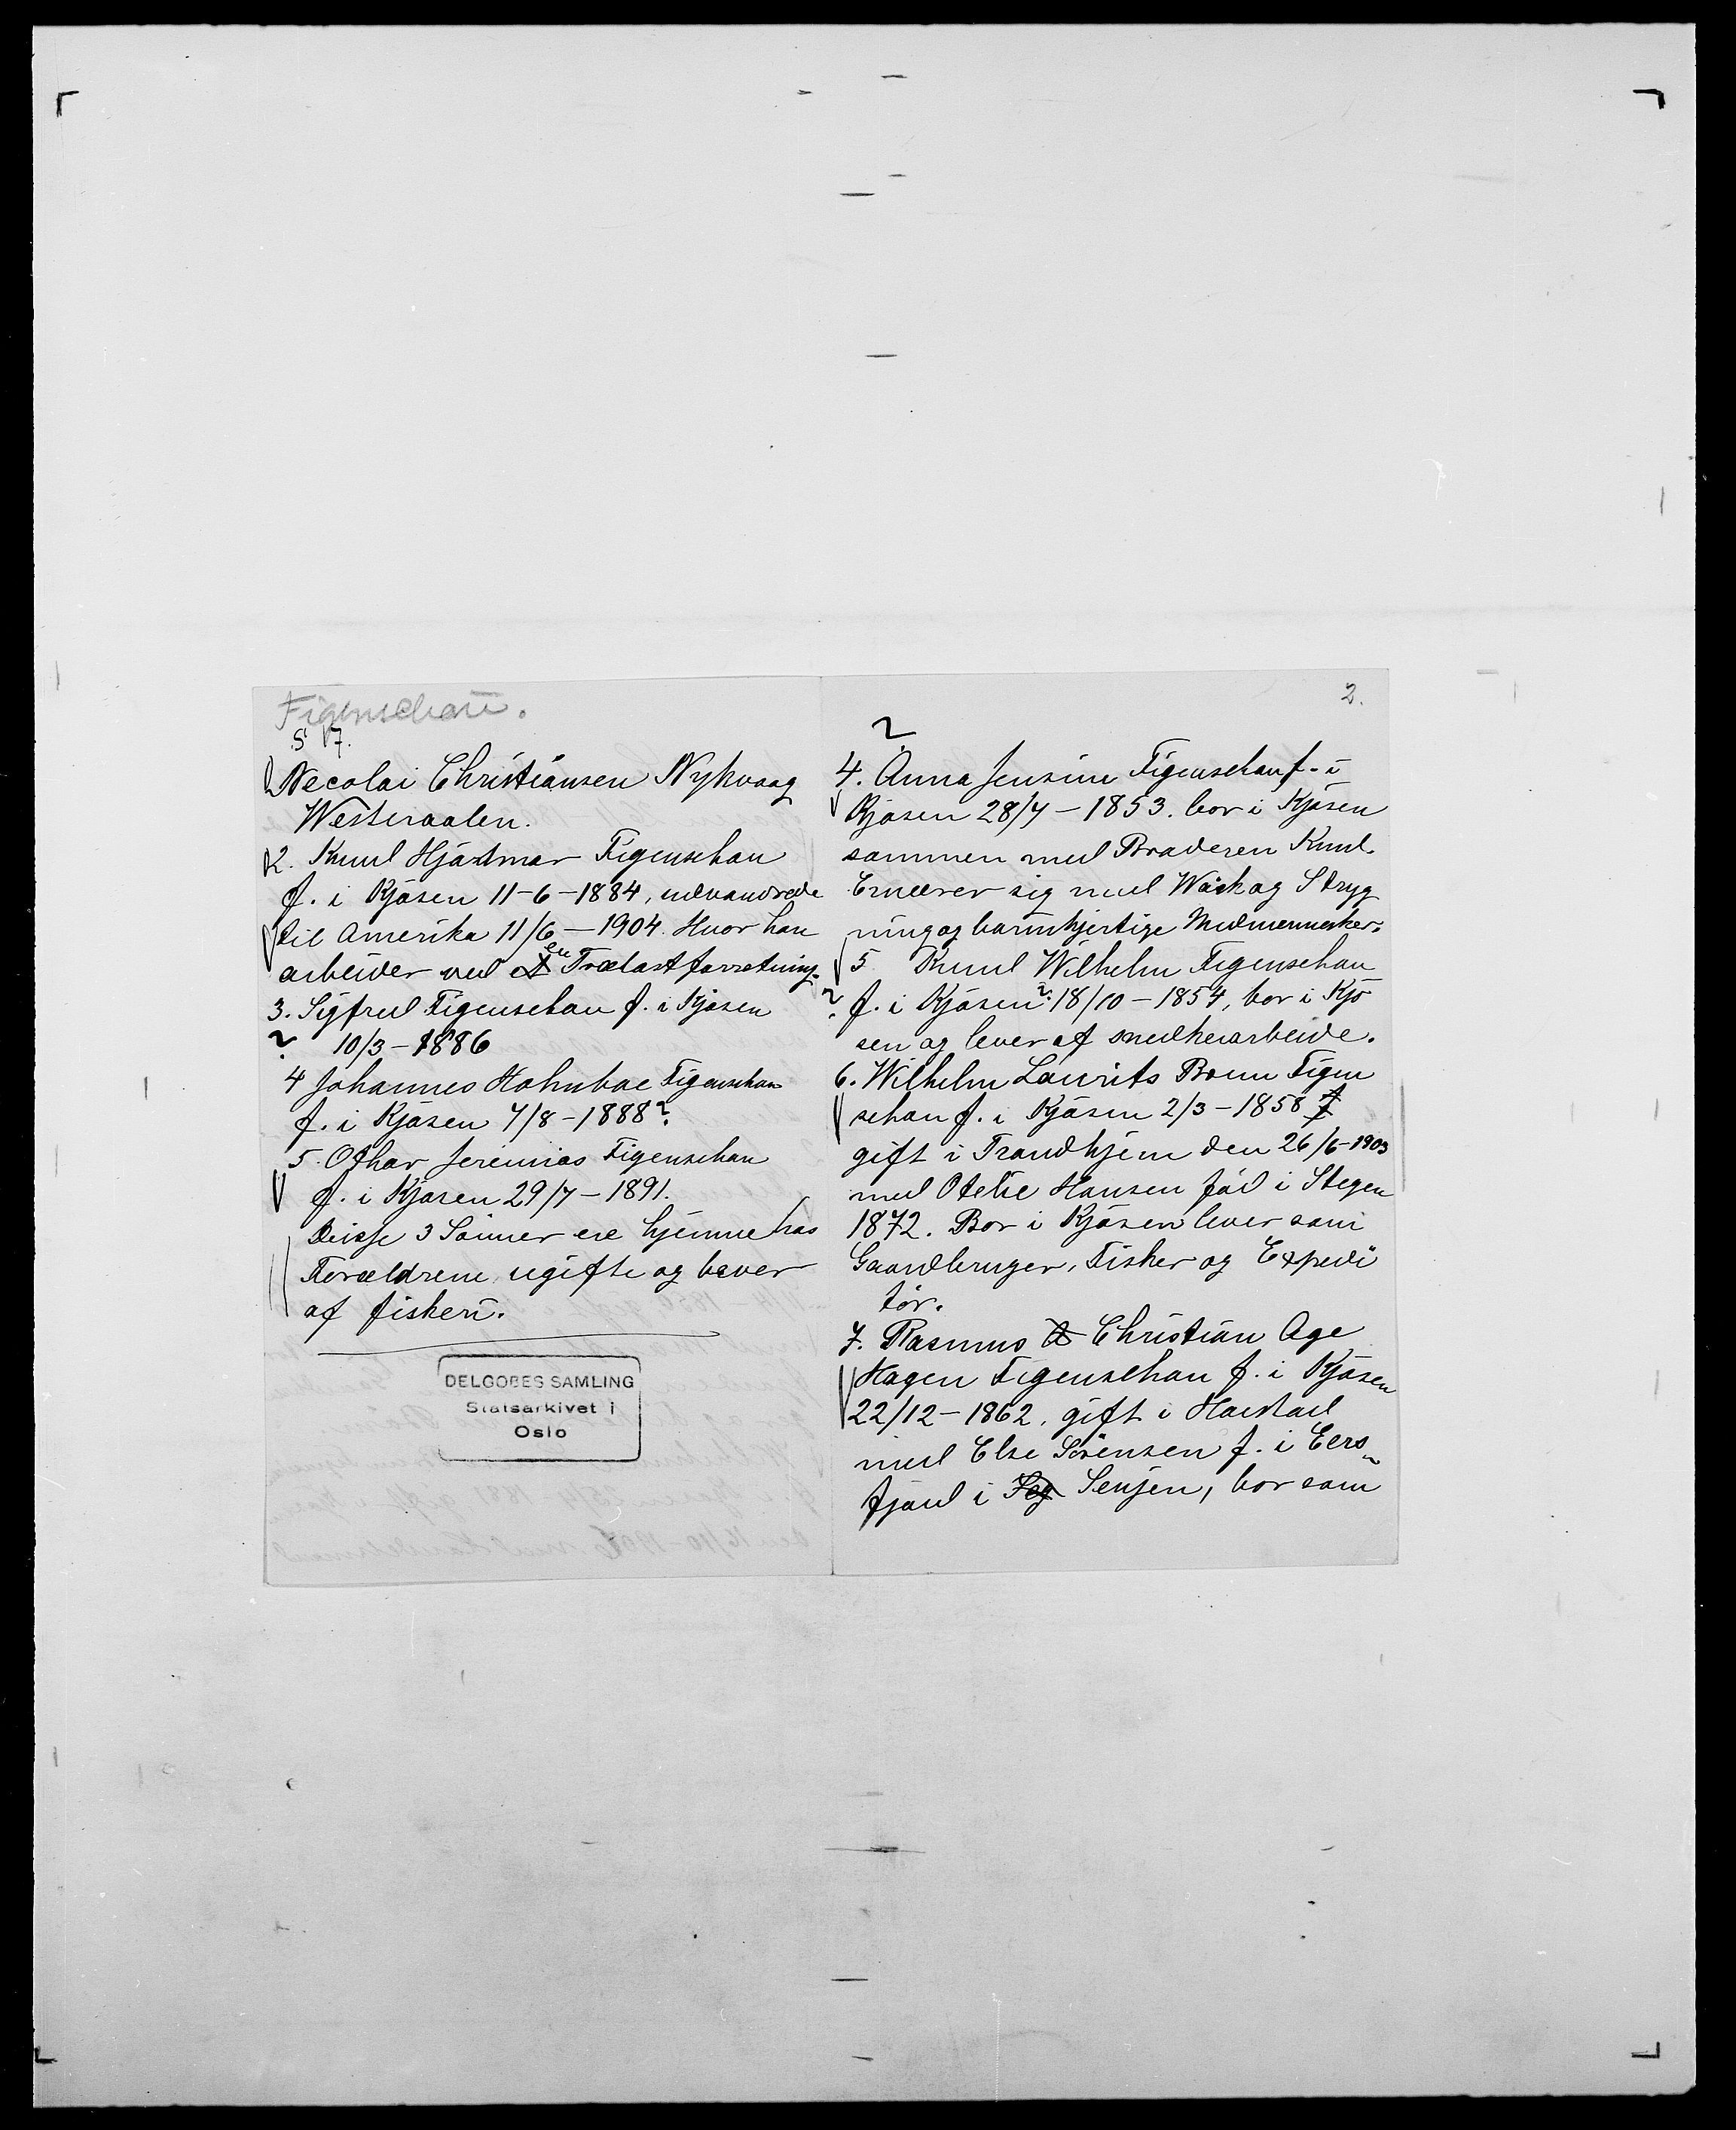 Figenschau.
S 17.
Necolai Christiansen Nykvaag
Westeraalen.
2. Knud Hjalmar Figenschau
f. i Kjosen 11-6-1884, udvandrede
til Amerika 11/6-1904. Hvor han
arbeider ved en Trælastforretning.
3. Sigfred Figenschau f. i Kjosen
? 10/3-1886
4 Johannes Holmboe Figenschau
f. i Kjosen 7/8-1888?
5. Othar Jeremias Figenschau
f. i Kjosen 29/7-1891.
Disse 3 Sönner ere hjemme hos
Foreldrene ugifte og lever
af fiskeri.
DELGOBES SAMLING
Statsarkivet i
Oslo
2.
?
4. Anna Jensine Figenschau f. i
Kjosen 28/7-1853. bor i Kjosen
sammen med Broderen Knud.
Ernærer sig med Wask og Stryg
ning og barmhjertige Medmennesker.
5 Knud Wilhelm Figenschau
? f. i Kjosen? 18/10-1854, bor i Kjo
sen og lever af snedkerarbeide.
6. Wilhelm Laurits Bonn Figen
schau f. i Kjosen 2/3-1858
gift i Trondhjem den 26/6-1903
med Otelie Hansen föd i Stegen
1872. Bor i Kjosen lever som
Gaardbruger, Fisker og Expedi
tör.
7. Rasmus Christian Age
Hagen Figenschau f. i Kjosen
22/12-1862. gift i Harstad
med Else Sörensen f. i Ers
fjord i Senjen, bor som